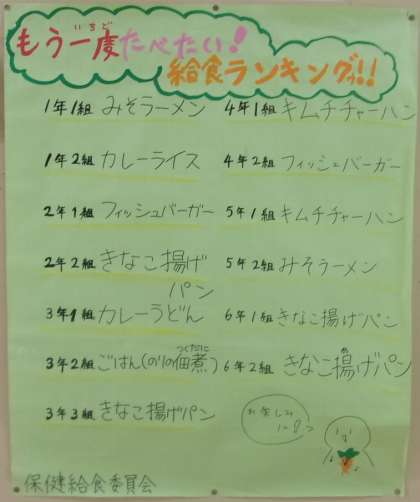 もう一度たべたい!
いちど
給食ランキングゥ!!
1年1組 みそラーメン
1年2組 カレーライス
2年1組 フィッシュバーガー
2年2組 きなこ揚げ
パン
3年1組 カレーうどん
3年2組 ごはん(のりの佃煮)
つくだに
3年3組 きなこ揚げパン
4年1組 キムチチャーハン
4年2組 フィッシュバーガー
5年1組 キムチチャーハン
5年2組 みそラーメン
6年1組 きなこ揚げパン
6年2組 きなこ揚げパン
あ
お楽しみ
に!
保健給食委員会